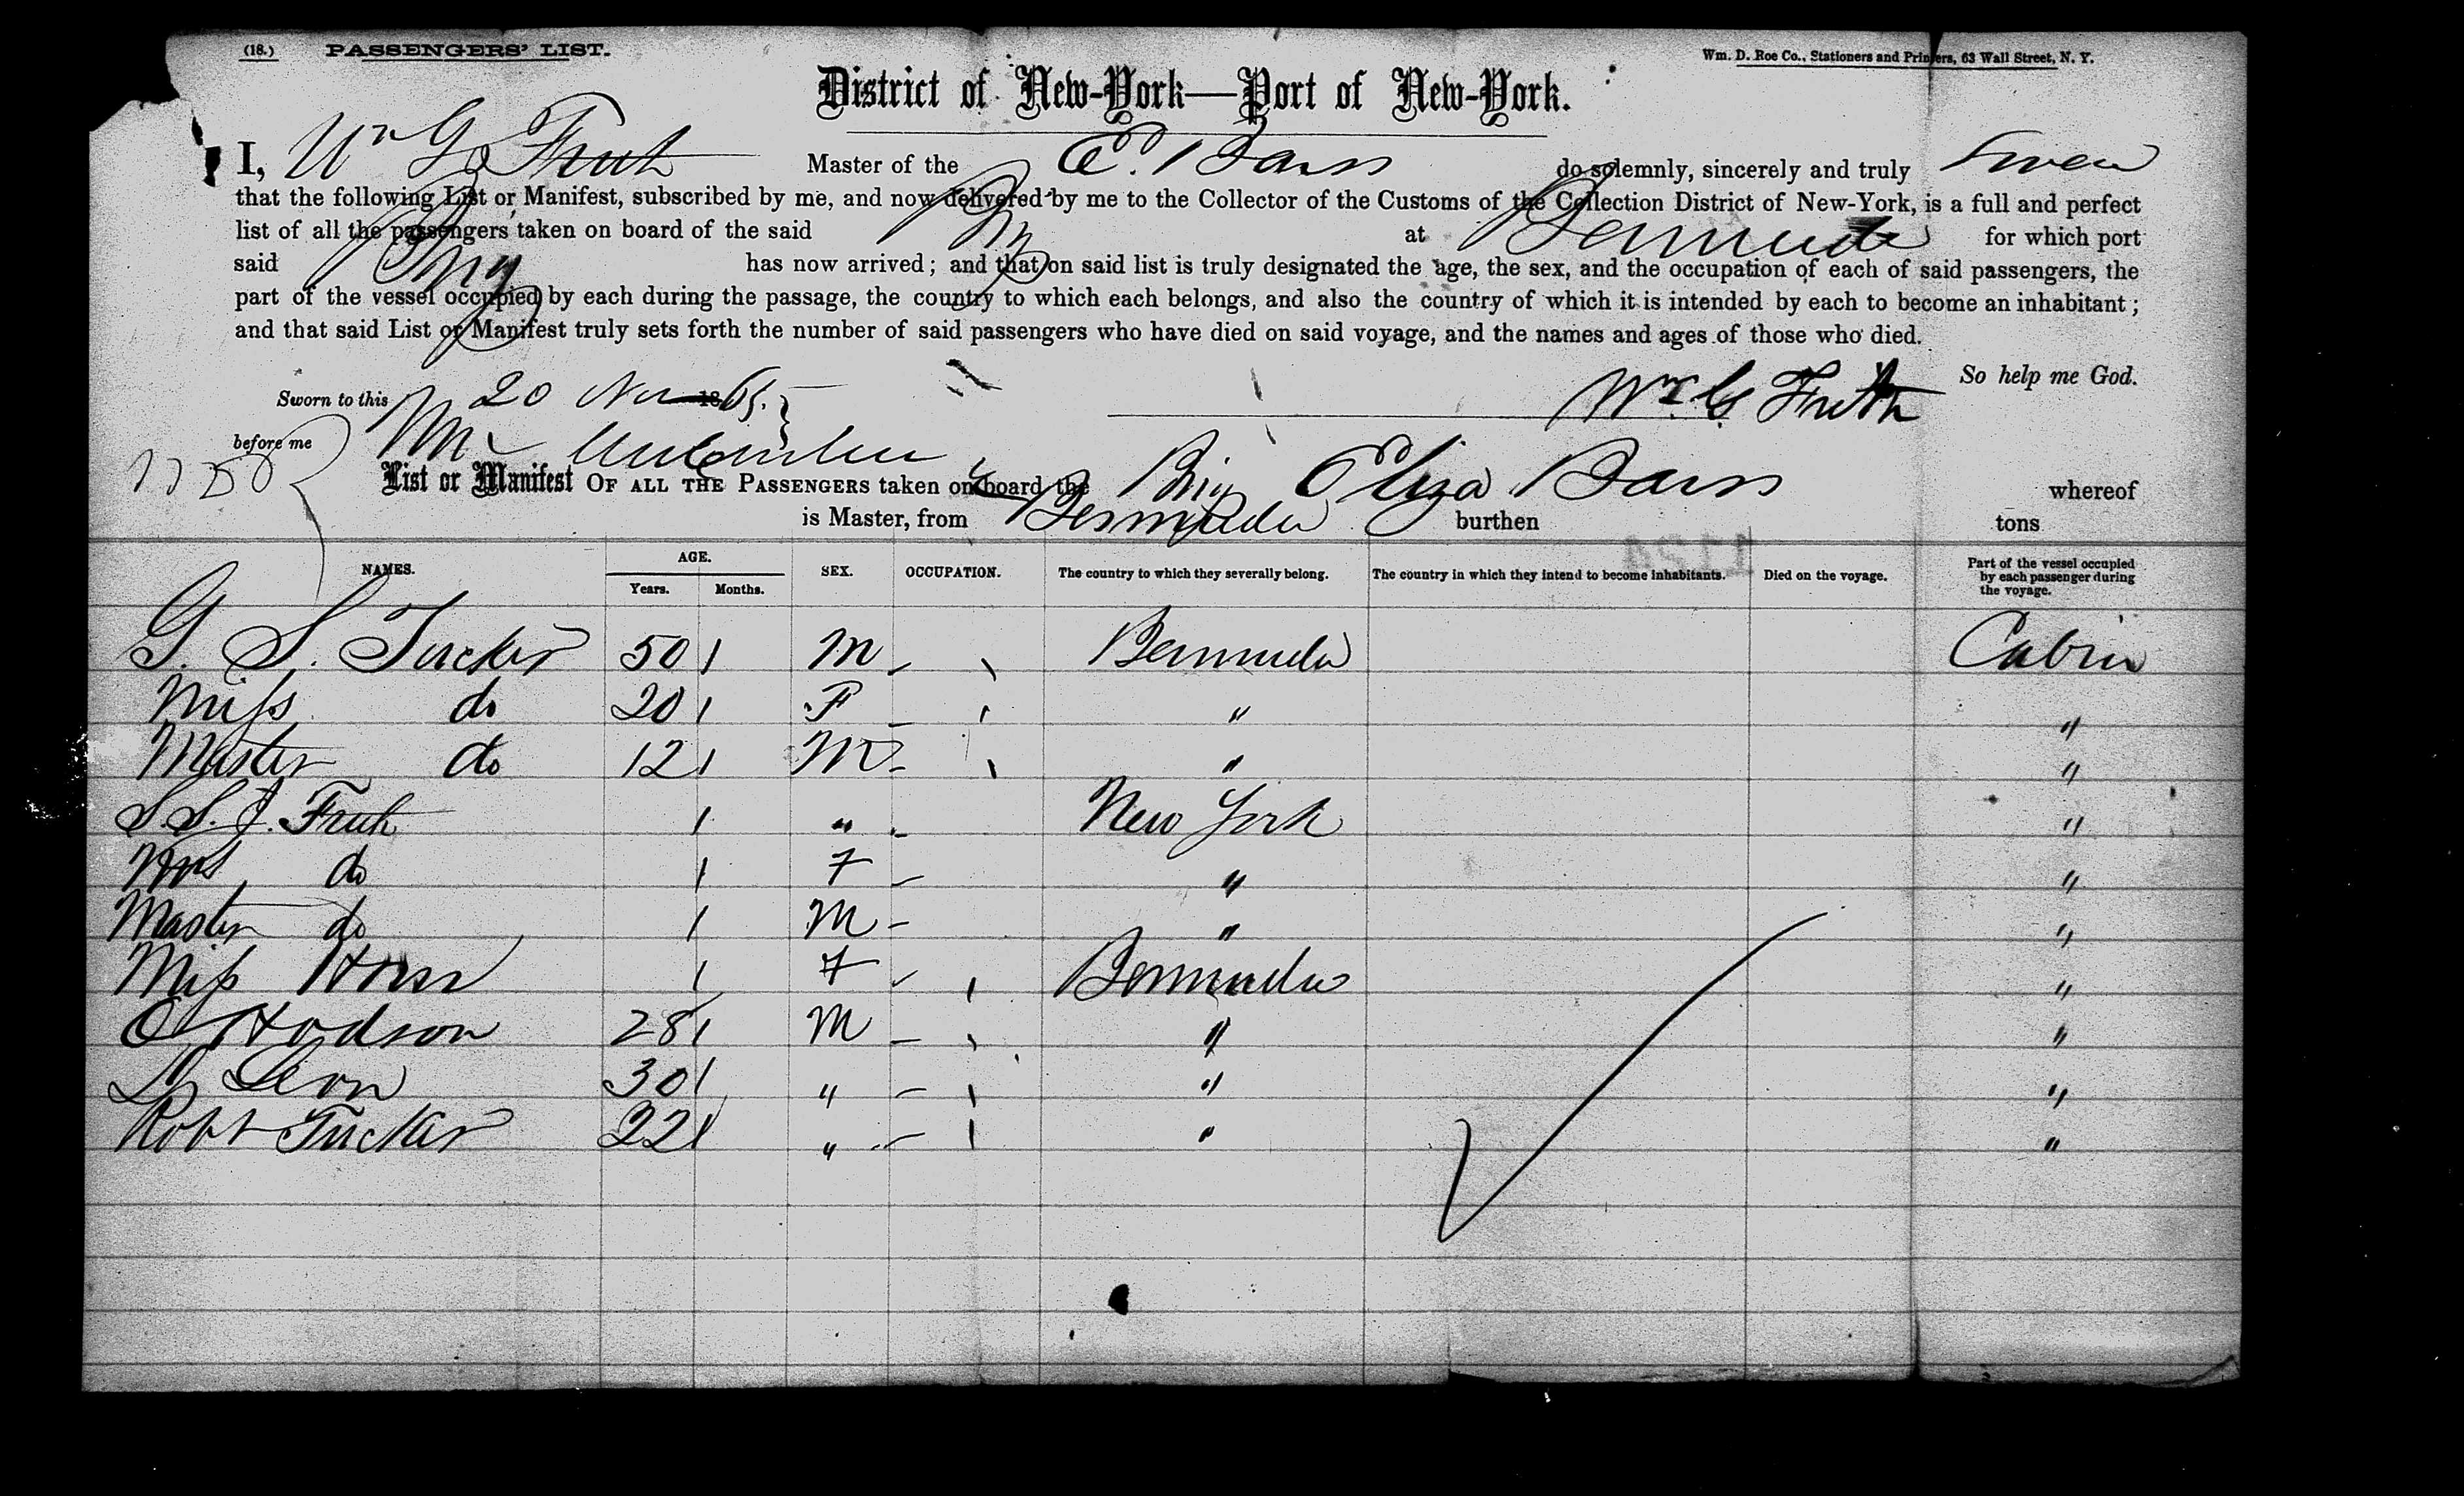 (18.) PASSENGERS' LIST. Wm. D. Roe Co., Stationers and Printers, 63 Wall Street, N. Y.
District of New-York—Port of New-York.
I, Wm G Frith Master of the E. Barss do solemnly, sincerely and truly swear
that the following List or Manifest, subscribed by me, and now delivered by me to the Collector of the Customs of the Collection District of New-York, is a full and perfect
list of all the passengers taken on board of the said Brig at Bermuda for which port
said Brig has now arrived; and that on said list is truly designated the age, the sex, and the occupation of each of said passengers, the
part of the vessel occupied by each during the passage, the country to which each belongs, and also the country of which it is intended by each to become an inhabitant;
and that said List or Manifest truly sets forth the number of said passengers who have died on said voyage, and the names and ages of those who died.
So help me God.
Sworn to this 20 Nov 1865. Wm G Frith
before me
List or Manifest OF ALL THE PASSENGERS taken on board the Brig Eliza Barss whereof
is Master, from Bermuda burthen tons
NAMES. AGE. Years. Months. SEX. OCCUPATION. The country to which they severally belong. The country in which they intend to become inhabitants. Died on the voyage. Part of the vessel occupied by each passenger during the voyage.
G. S. Tucker 50 M Bermuda Cabin
Miss do 20 F " "
Master do 12 M " "
S. S. J. Frith " New York "
Mrs do F " "
Master do M " "
Miss F Bermuda "
Hodson 28 M " "
Leon 30 " " "
Robt Tucker 22 " " "